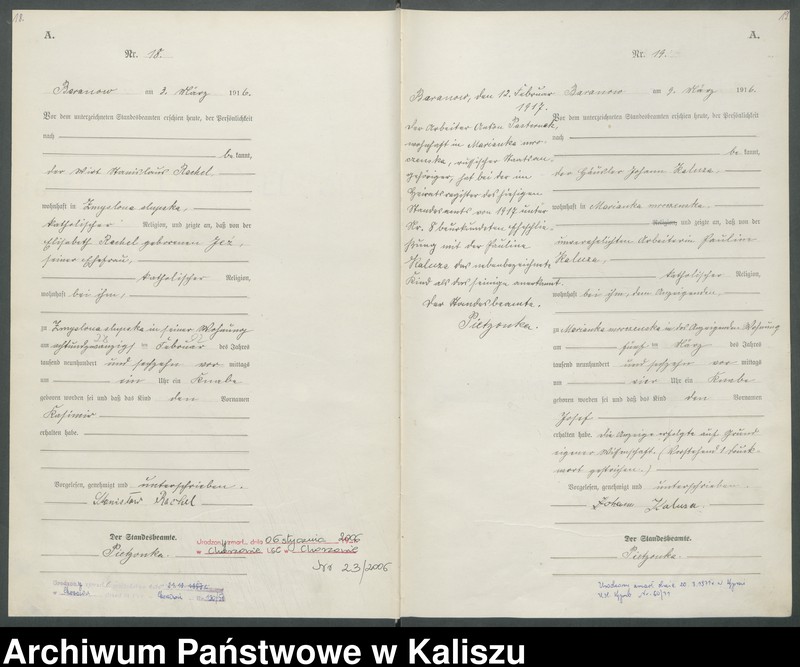 18.
A.
Nr. 18.
Baranow am 3. März 1916.
Vor dem unterzeichneten Standesbeamten erschien heute, der Persönlichkeit
nach
be kannt,
der Wirt Stanislaus Rechel
wohnhaft in Zmyslona slupska,
katholischer Religion, und zeigte an, daß von der
Elisabeth Rechel geborenen Jez,
seiner Ehefrau,
katholischer Religion,
wohnhaft bei ihm,
zu Zmyslona slupska in seiner Wohnung
am achtundzwanzigsten Februar des Jahres
tausend neunhundert und sechzehn vor mittags
um ein Uhr ein Knabe
geboren worden sei und daß das Kind den Vornamen
Kasimir
erhalten habe.
Vorgelesen, genehmigt und unterschrieben.
Stanisław Rechel
Der Standesbeamte.
Pietzonka.
dnia 06 stycznia 2006
w Chorzowie USC w Chorzowie
Nr 23/2006
19
A.
Nr. 19.
Baranow, den 12. Februar
1917.
Der Arbeiter Anton
wohnhaft in Marianka mro-
czenska, russischer Staatsan-
gehöriger, hat bei der im
Heiratsregister des hiesigen
Standesamts von 1917 unter
Nr. beurkundeten Eheschlie-
ßung mit der Pauline
Kaluza das nebenbezeichnete
Kind als das seinige anerkannt.
Der Standesbeamte.
Pietzonka.
Baranow am 9. März 1916.
Vor dem unterzeichneten Standesbeamten erschien heute, der Persönlichkeit
nach
be kannt,
der Häusler Johann Kaluza,
wohnhaft in Marianka mroczenska.
Religion, und zeigte an, daß von der
unverehelichten Arbeiterin Pauline
Kaluza,
katholischer Religion,
wohnhaft bei ihm, dem Anzeigenden,
zu Marianka mroczenska in des Anzeigenden Wohnung
am fünf ten März des Jahres
tausend neunhundert und sechzehn vor mittags
um vier Uhr ein Knabe
geboren worden sei und daß das Kind den Vornamen
Josef
erhalten habe. Die Anzeige erfolgte auf Grund
eigener Wissenschaft. (Vorstehend 1 Druck-
wort gestrichen.)
Vorgelesen, genehmigt und unterschrieben.
Johann Kaluza.
Der Standesbeamte.
Pietzonka.
Archiwum Państwowe w Kaliszu